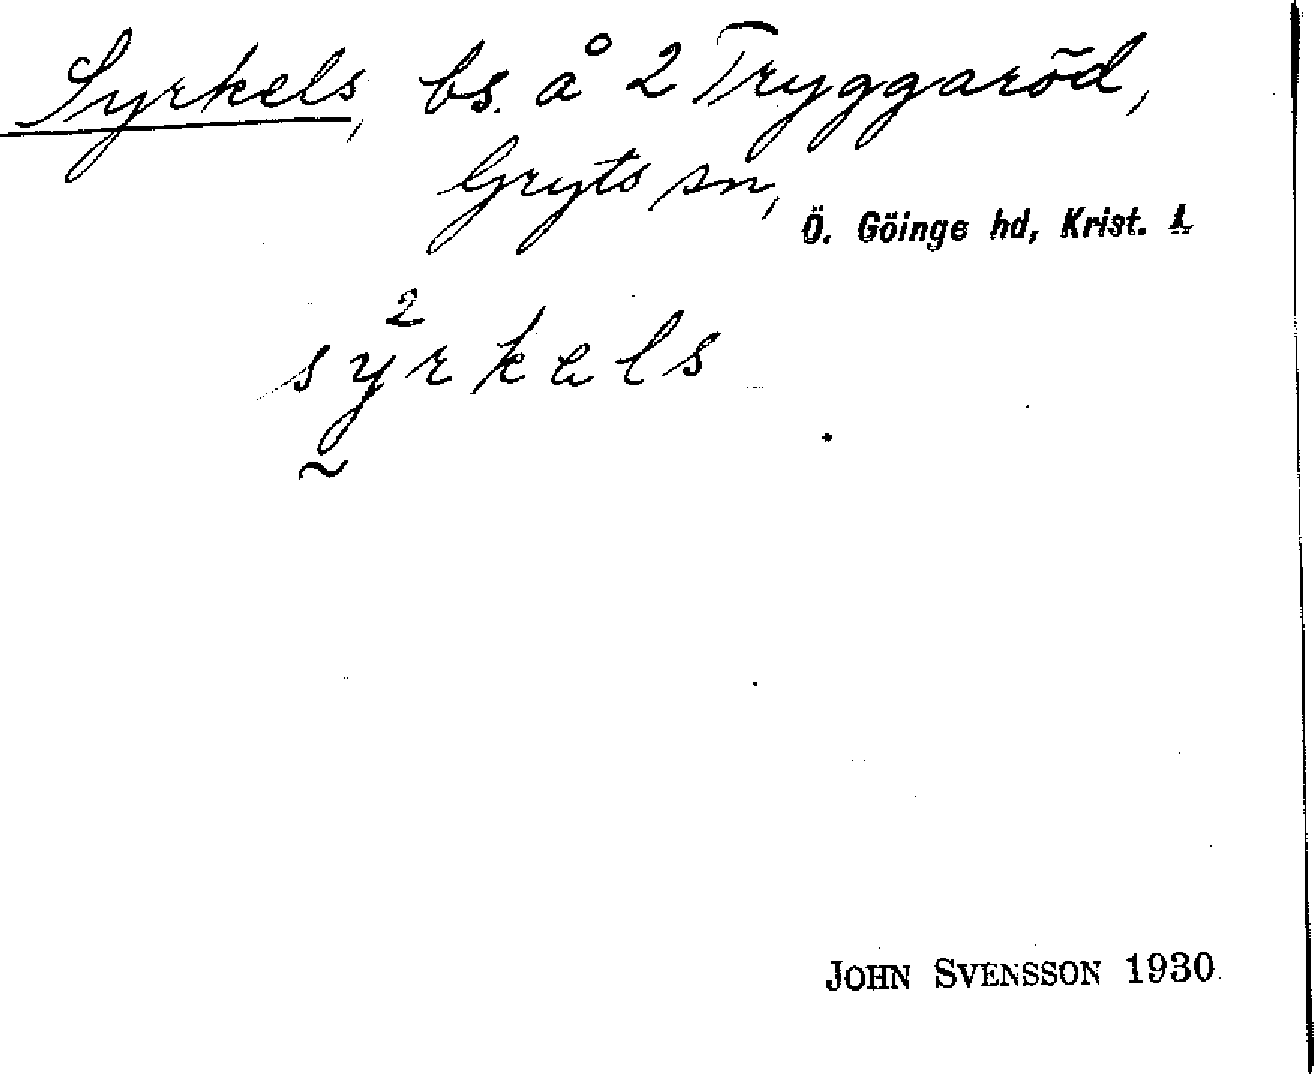 Syrkels, bs. å 2 Tryggaröd,
Gryts sn,
Ö. Göinge hd, Krist. L
2
syrkels
~
JOHN SVENSSON 1930